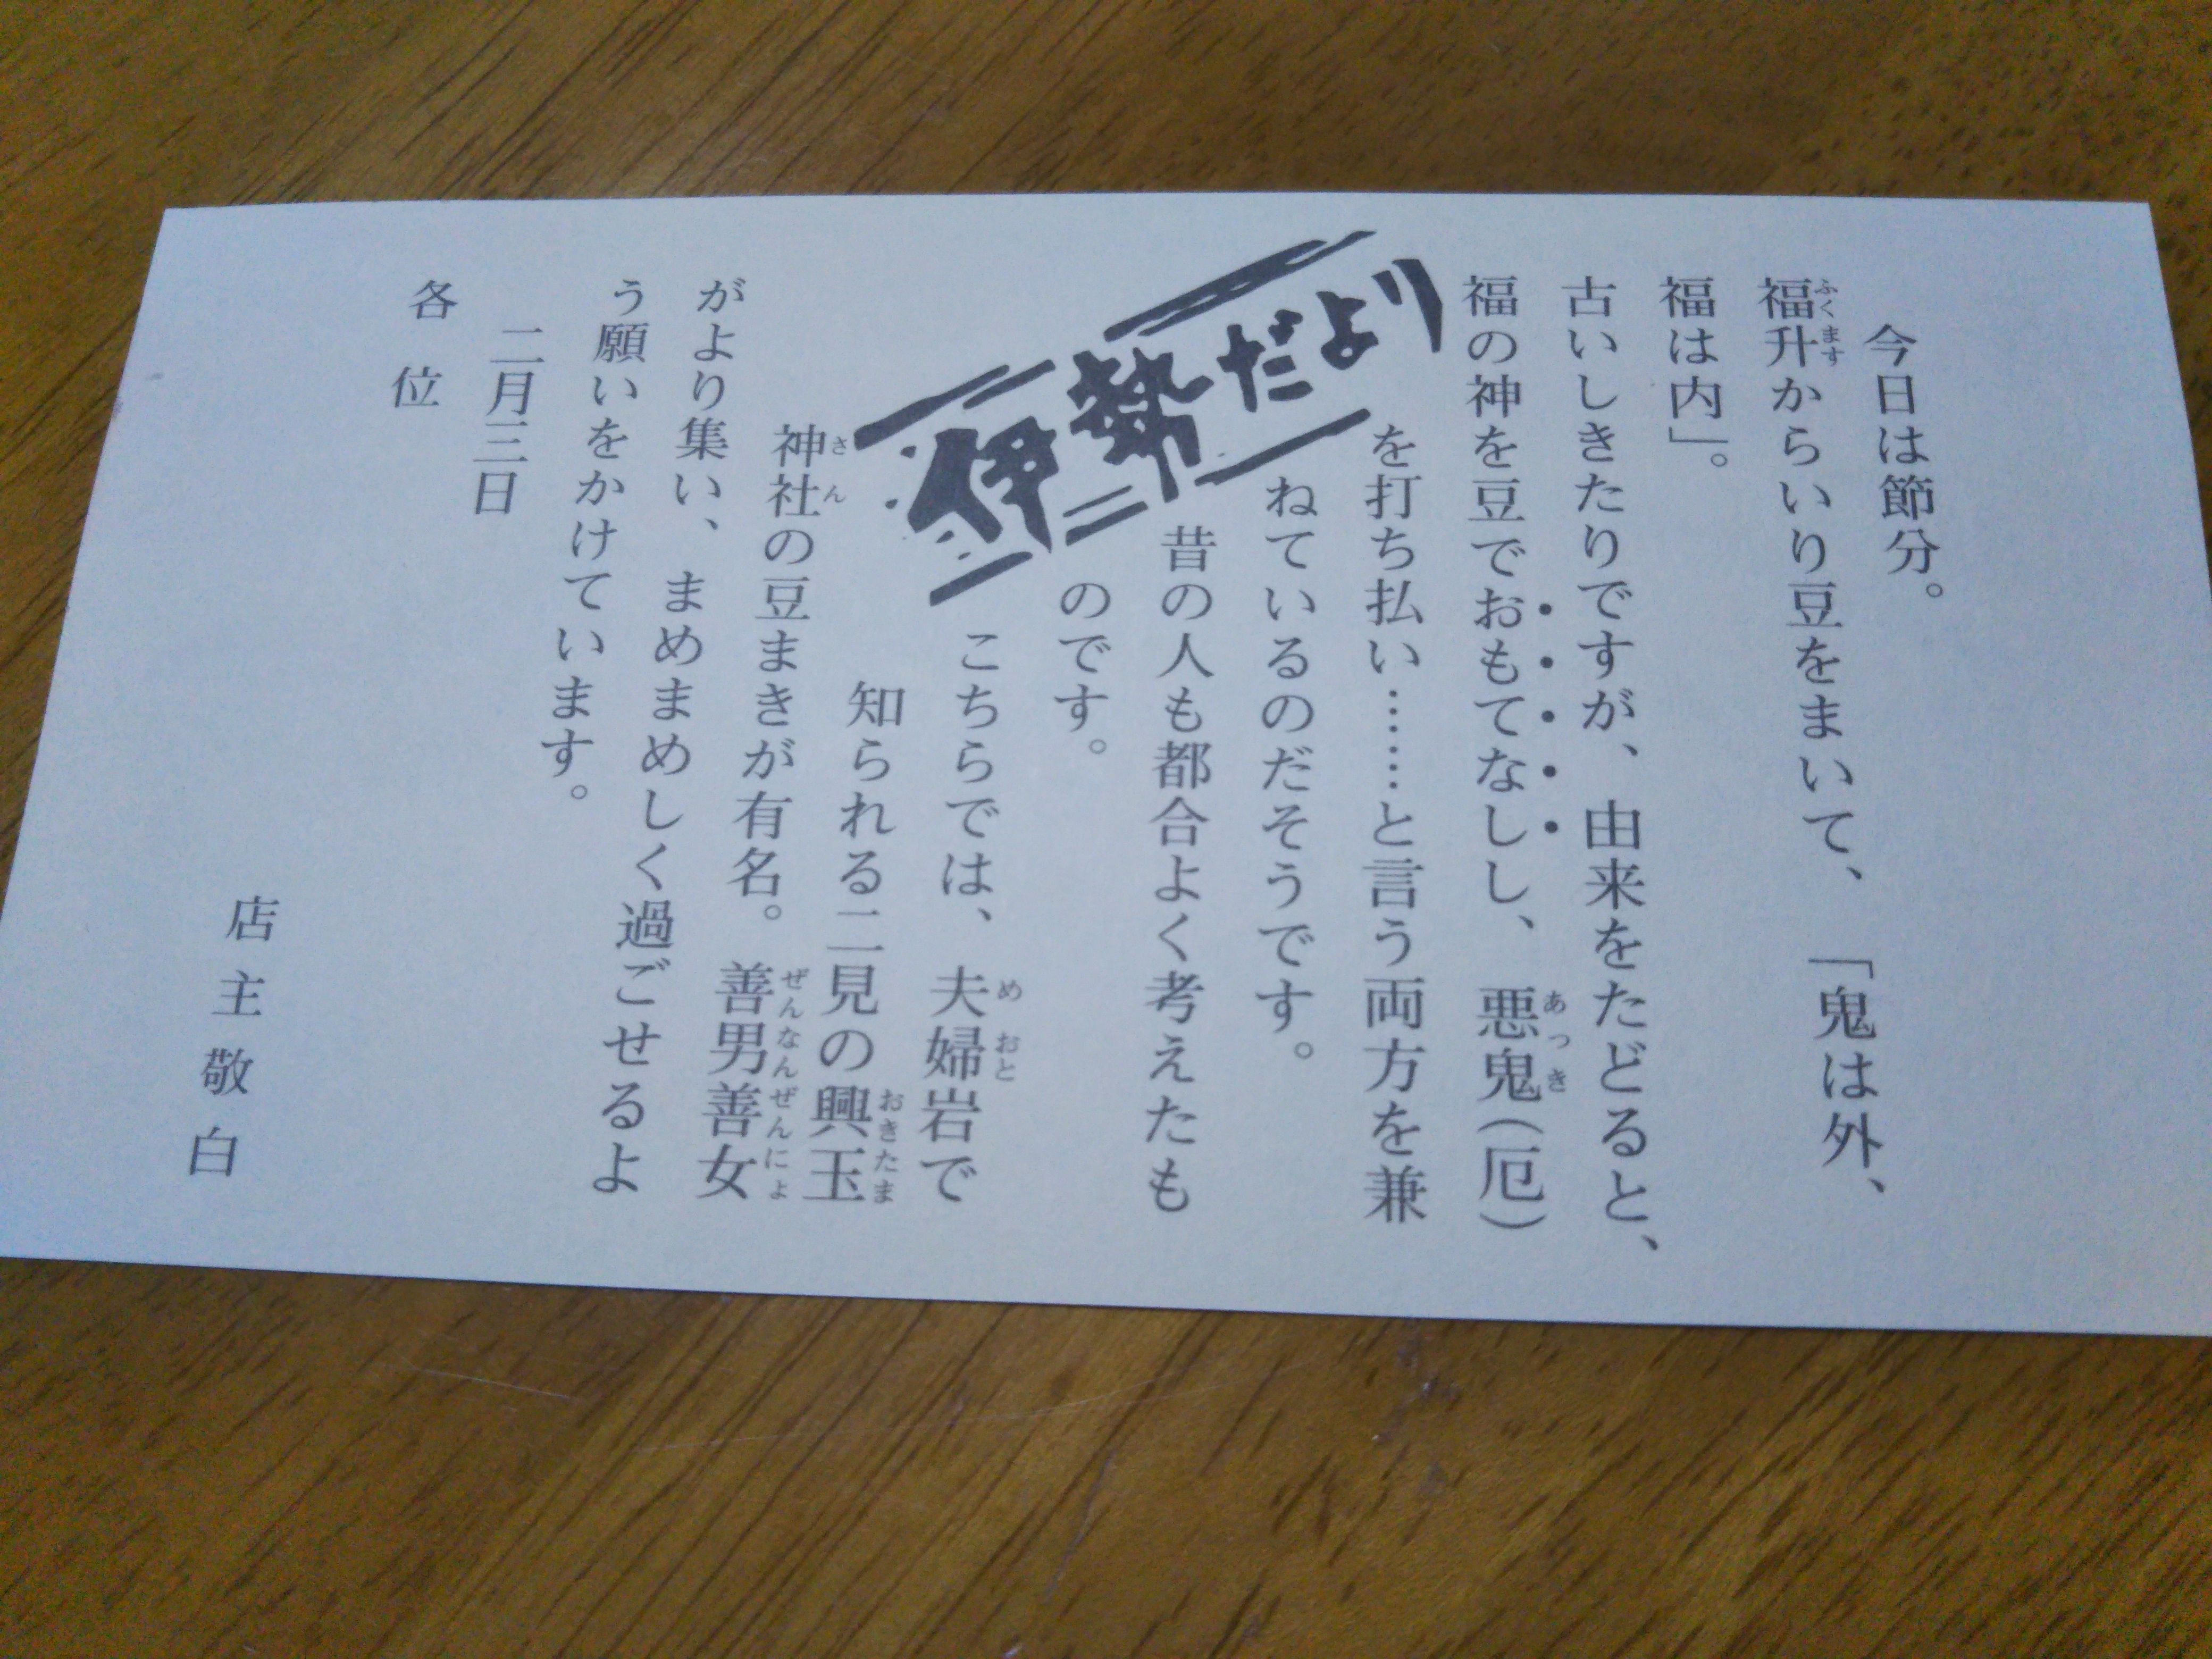 今日は節分。
福升からいり豆をまいて、「鬼は外、
ふくます
福は内」。
古いしきたりですが、由来をたどると、
福の神を豆でおもてなしし、悪鬼(厄)
あっき
を打ち払い……と言う両方を兼
ねているのだそうです。
昔の人も都合よく考えたも
のです。
伊勢だより
こちらでは、夫婦岩で
めおと
知られる二見の興玉
おきたま
神社の豆まきが有名。善男善女
さん
ぜんなんぜんにょ
がより集い、まめまめしく過ごせるよ
う願いをかけています。
二月三日
各位
店主敬白